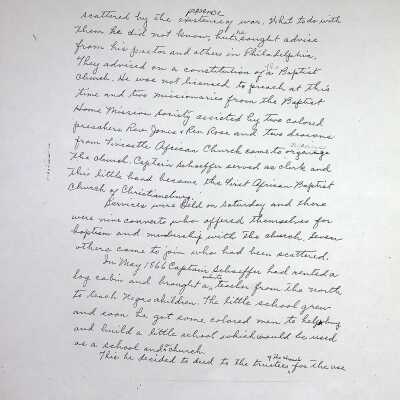 passence
scattered by the existency war. What to do with
them he did not know, but he sought advise
from his pastor and others in Philadelphia.
They advised on a constitution of a Baptist
Church. He was not licensed to preach at this
time and two missionaries from the Baptist
Home Mission Society assisted by two colored
preachers Rev. Jones & Rev Rose and two deacons
from Fincastle African Church came to organize
the church. Captain Schaeffer served as clerk and
this little band became the First African Baptist
Church of Christiansburg.
Services were held on Saturday and there
were nine converts who offered themselves for
baptism and membership with the church. Seven
others came to join who had been scattered.
In May 1866 Captain Schaeffer had rented a
log cabin and brought a white teacher from the north
to teach Negro children. The little school grew
and soon he got some colored men to help buy
and build a little school which would be used
as a school and church.
This he decided to deed to the trustees of the church for the use